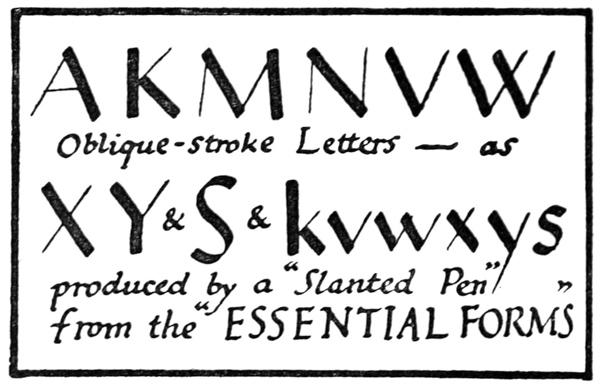 AKMNVW
Oblique-stroke Letters — as
XY & S & kvwxys
produced by a "Slanted Pen"
from the "ESSENTIAL FORMS"